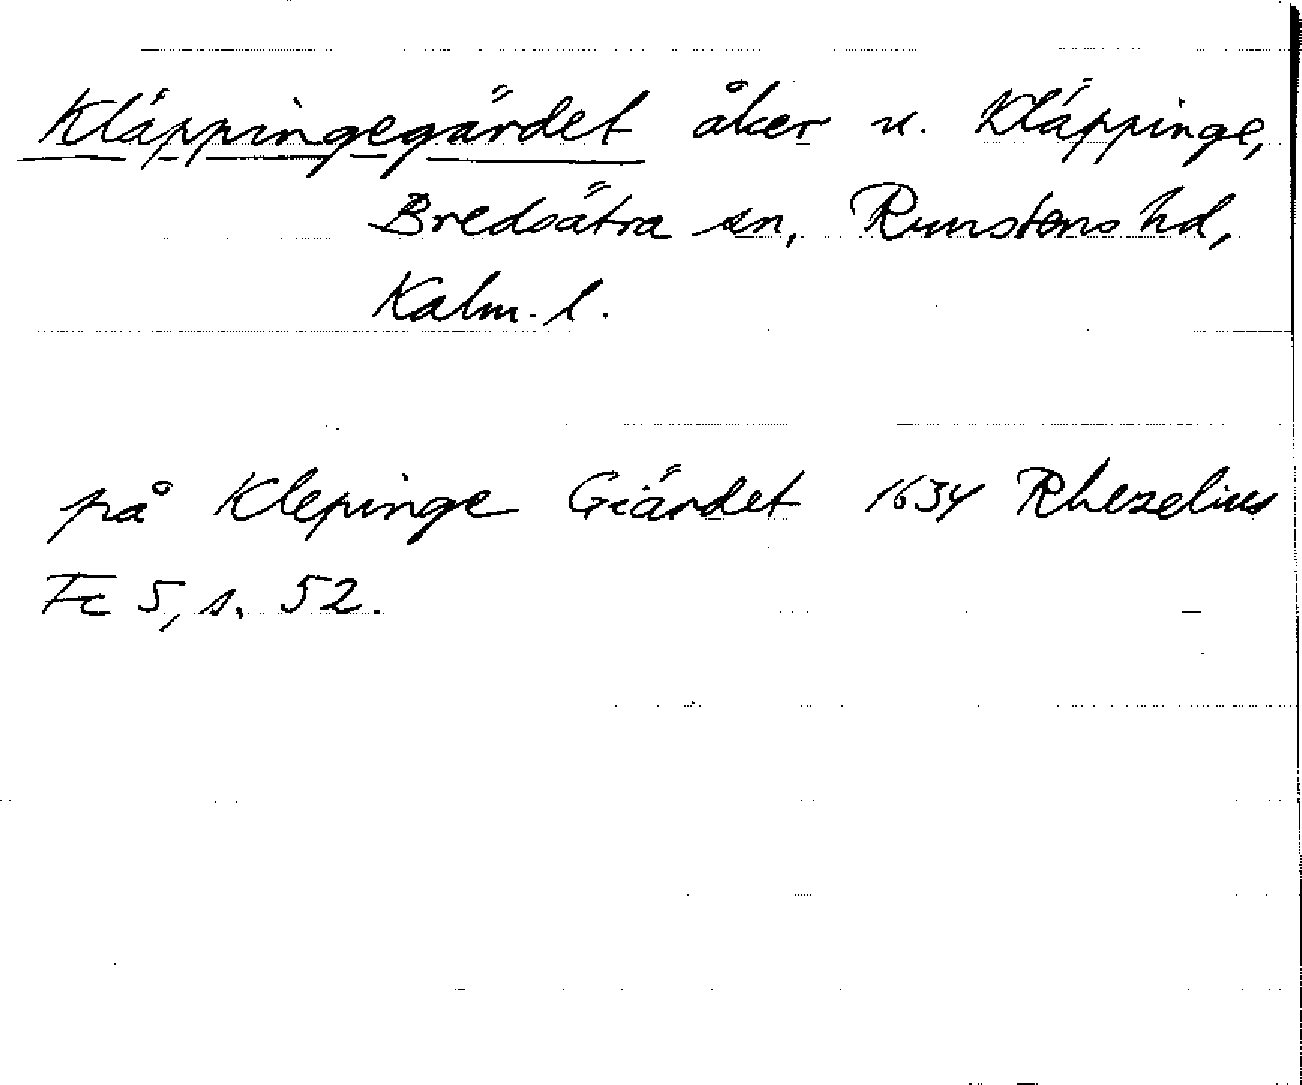 Kläppingegärdet åker u. Kläppinge,
Bredsätra sn, Runstens hd,
Kalm. l.
på Klepinge Giärdet 1634 Rhezelius
Fc 5, s. 52.